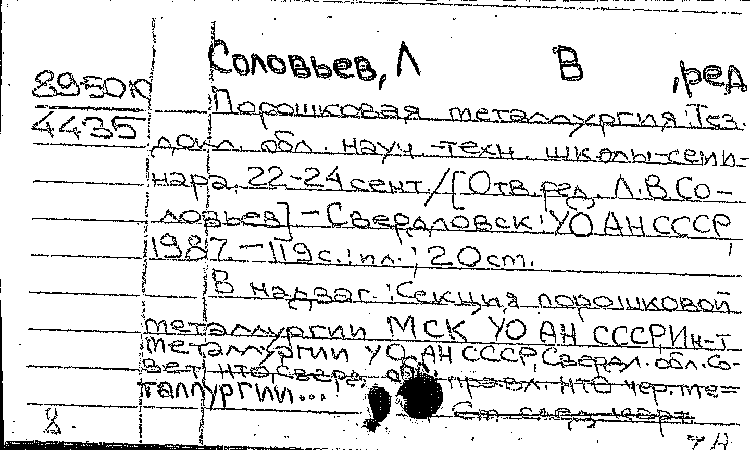 Соловьев, Л В , ред
89-50ю
4435
Порошковая металлургия: Тез.
докл. обл. науч.-техн. школы-семи-
нара, 22-24 сент. / [Отв. ред. Л. В. Со-
ловьев] - Свердловск: УО АН СССР,
1987. - 119 с.: ил.; 20 см.
В надзаг.: Секция порошковой
металлургии МСК УО АН СССР, Ин-т
металлургии УО АН СССР, Свердл. обл. Со-
вет НТО, Сверд. обл. правл. НТО чер. ме=
таллургии...
См. след. карт.
8.